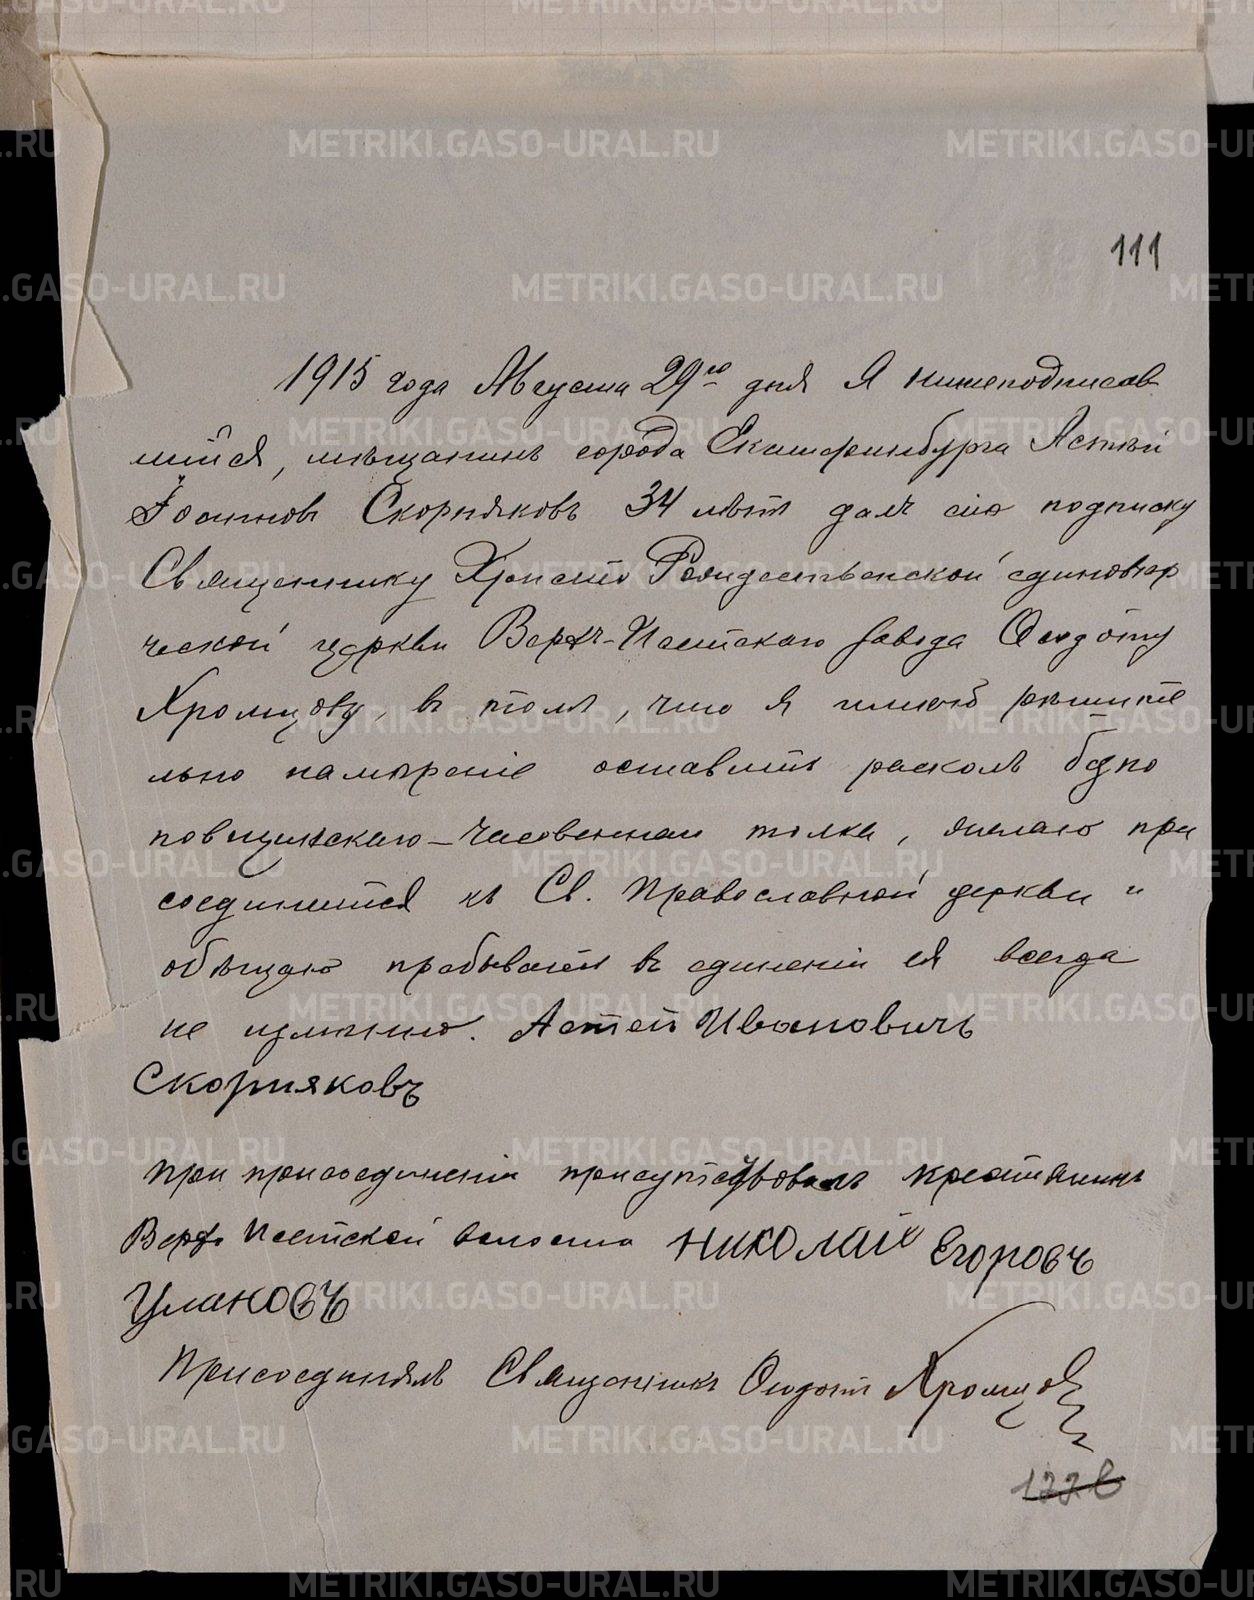 111
1915 года Августа 29го дня я нижеподписав
шійся, мѣщанинъ города Екатеринбурга Астѣй
Іоанновъ Скорняковъ 34 лѣтъ далъ сію подписку
Священнику Христо Рождественской единовѣр
ческой церкви Верхъ-Исетскаго завода Ѳеодоту
Хромцову, въ томъ, что я имѣю рѣшите
льно намѣреніе оставить расколъ безпо
повщинскаго-часовеннаго толка, желаю при
соединится къ Св. Православной церкви и
обѣщаю пребывать въ единеніи ея всегда
не измѣнно. Астей Ивановичъ
Скорняковъ
При присоединеніи присутствовалъ крестьянинъ
Верхъ Исетской волости Николай Егоровъ
Улановъ
Присоединялъ Священникъ Ѳеодотъ Хромцов
METRIKI.GASO-URAL.RU